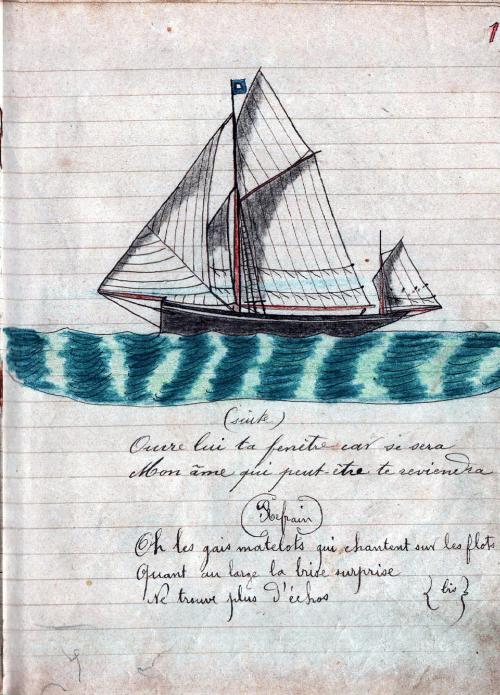 1
(suite)
Ouvre lui ta fenêtre car si sera
Mon âme qui peut-être te reviendra
Refrain
Oh les gais matelots qui chantent sur les flots
Quant au large la brise surprise
Ne trouve plus d'échos {bis}